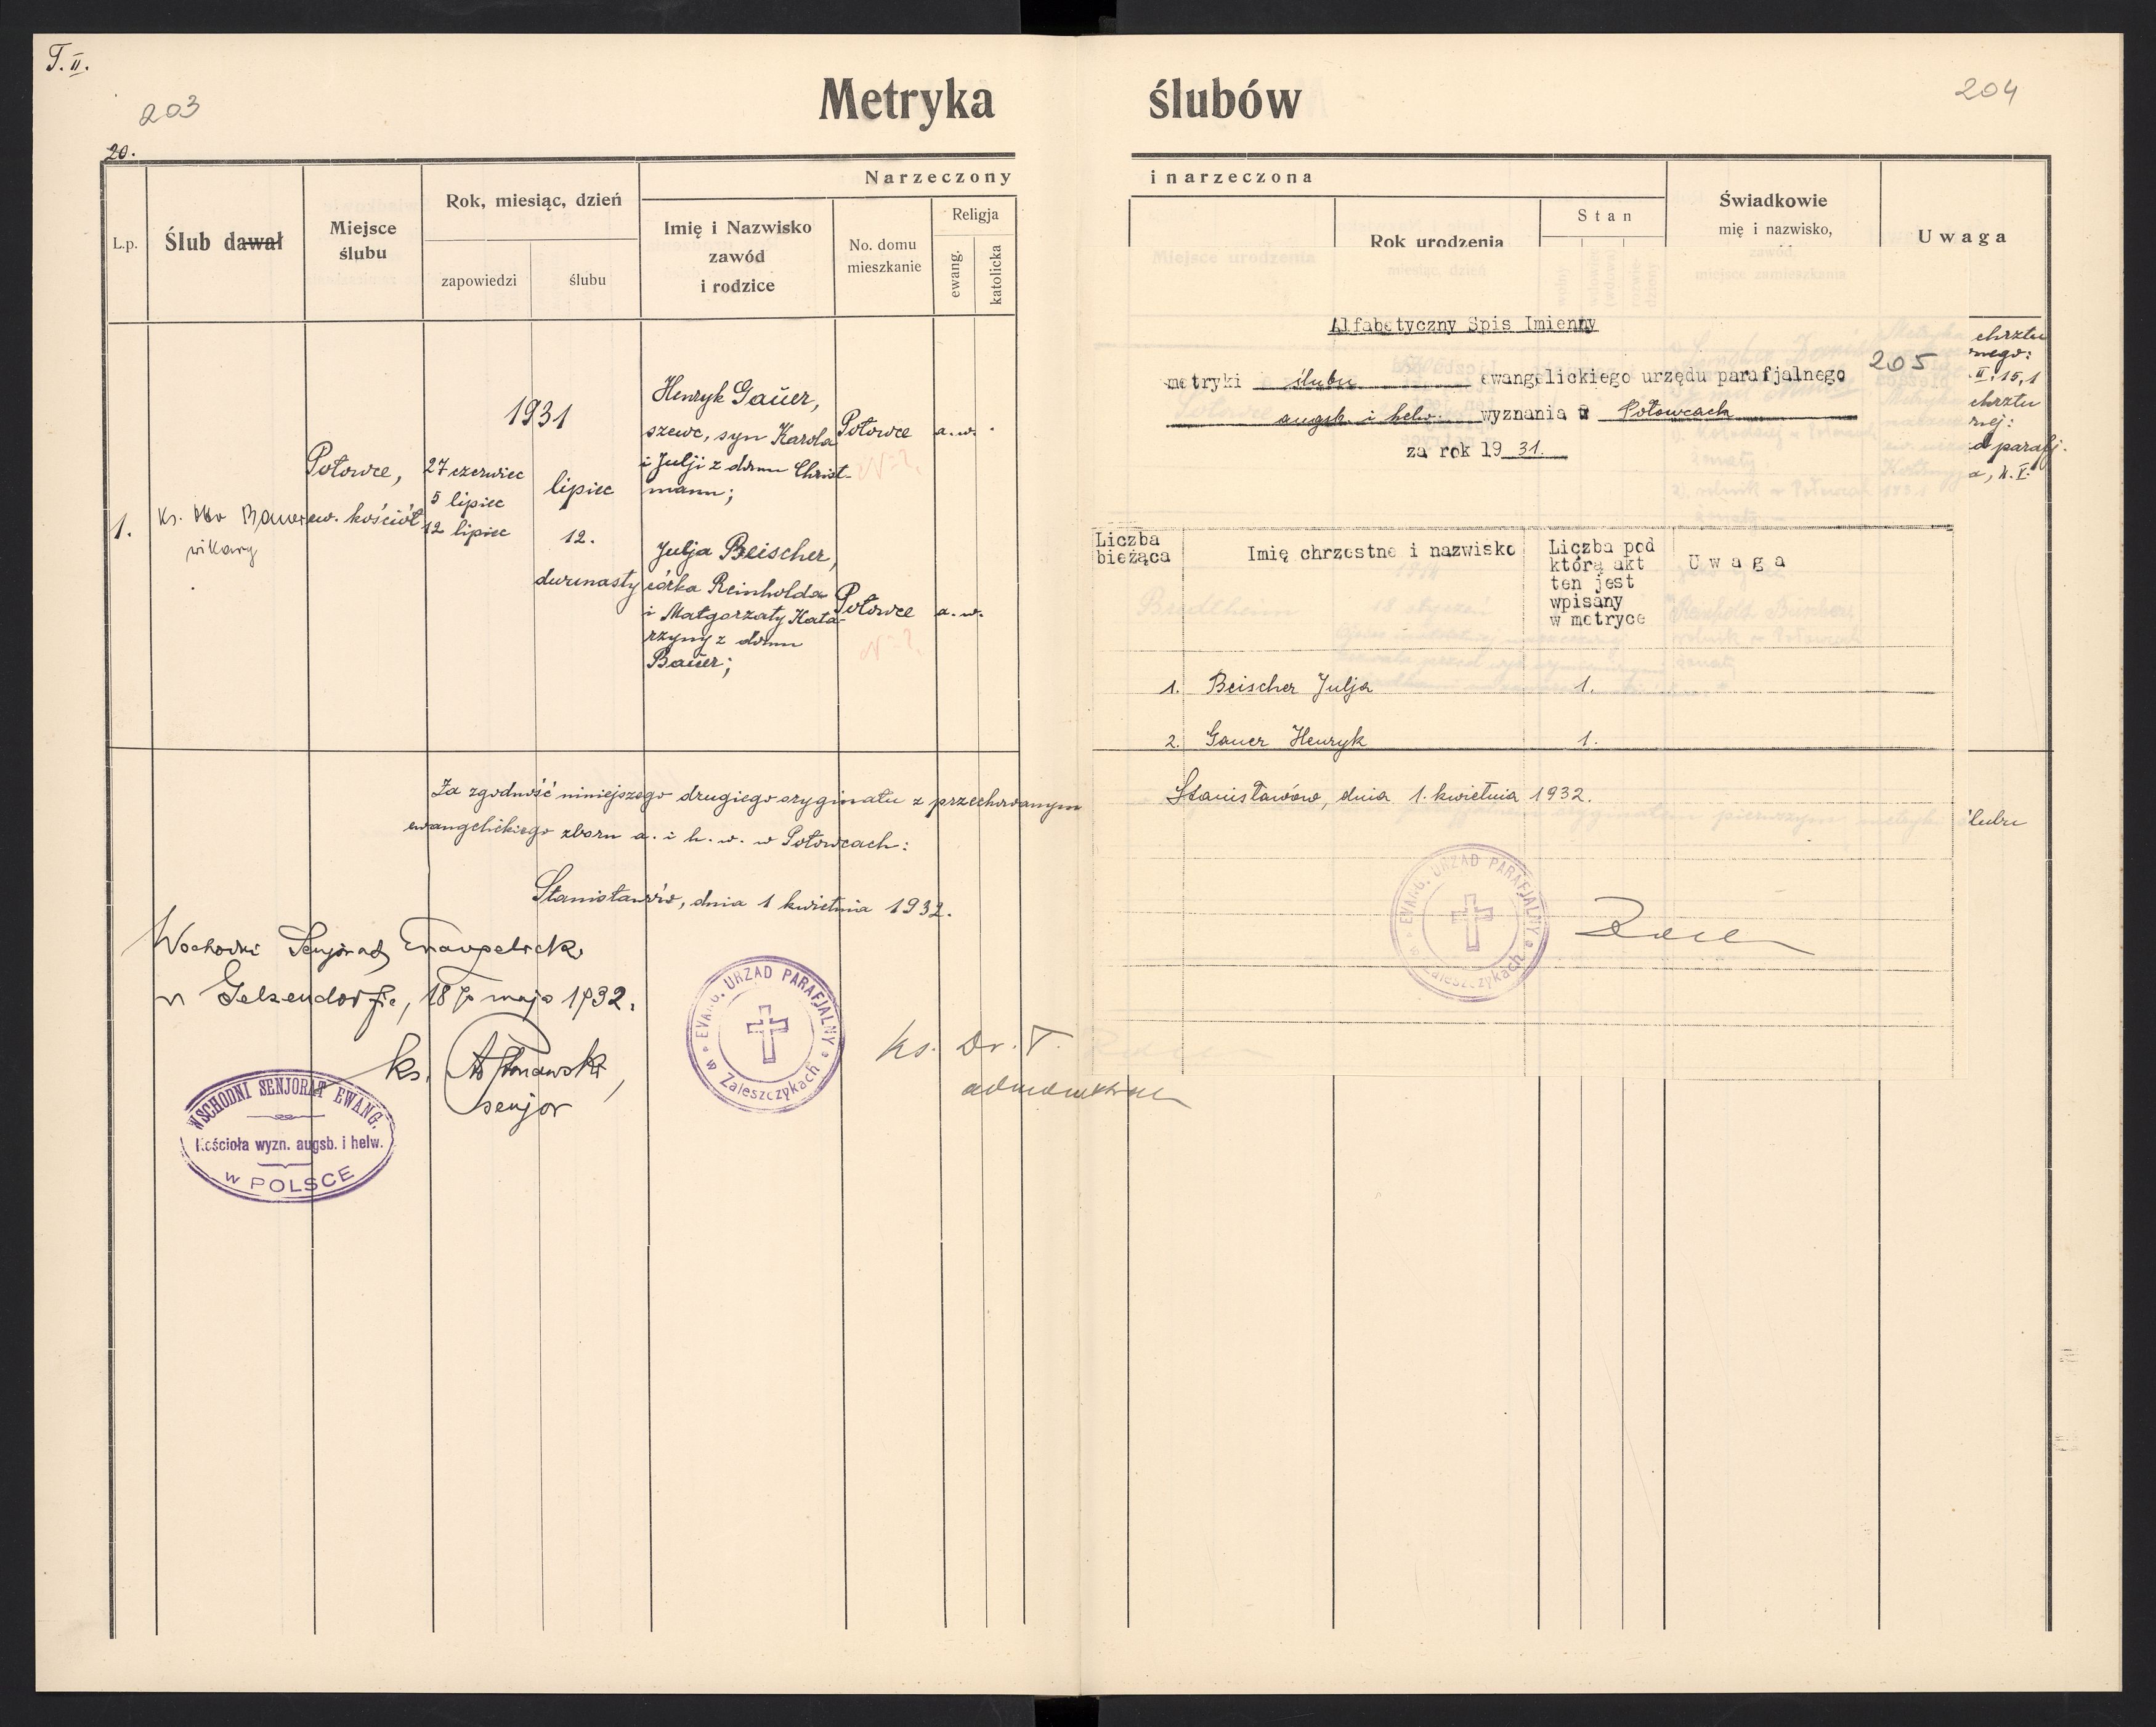 T. II.
203
20.
Metryka ślubów
204
L.p.
Ślub dawał
Miejsce
ślubu
Rok, miesiąc, dzień
zapowiedzi
ślubu
Narzeczony
Imię i Nazwisko
zawód
i rodzice
No. domu
mieszkanie
Religja
ewang.
katolicka
1.
wikary
Potowce,
ew. kościół
1931
27 czerwiec
5 lipiec
12 lipiec
lipiec
12.
dwunasty
Henryk Gaŭer,
szewc, syn Karola
i Julji z domu Christ-
mann;
Potowce
a.w.
N=?
Julja Beischer,
córka Reinholda
i Małgorzaty Kata-
rzyny z domu
Baŭer;
Potowce
a.w.
N=?
Za zgodność niniejszego drugiego oryginału z przechowanym
ewangelickiego zboru a. i h. w. w Potowcach:
Stanisławów, dnia 1 kwietnia 1932.
Wschodni Senjorat Ewangelicki
w Gelsendorfie, 18 go maja 1932.
ks.
senjor
WSCHODNI SENJORAT EWANG.
Kościoła wyzn. augsb. i helw.
w POLSCE
EWANG. URZAD PARAFJALNY
w Zaleszczykach
ks. Dr. T.
i narzeczona
Rok urodzenia
Stan
Świadkowie
mię i nazwisko,
Uwaga
Alfabetyczny Spis Imienny
205
metryki ślubu ewangelickiego urzędu parafjalnego
augsb. i helw. wyznania w Potowcach
za rok 19 31.
chrztu
nego:
II, 15, 1
chrztu
nej:
d parafj.
a, k. I.
Liczba
bieżąca
Imię chrzestne i nazwisko
Liczba pod
którą akt
ten jest
wpisany
w metryce
Uwaga
1. Beischer Julja 1.
2. Gauer Henryk 1.
Stanisławów, dnia 1. kwietnia 1932.
ślubu
EWANG. URZAD PARAFJALNY
w Zaleszczykach